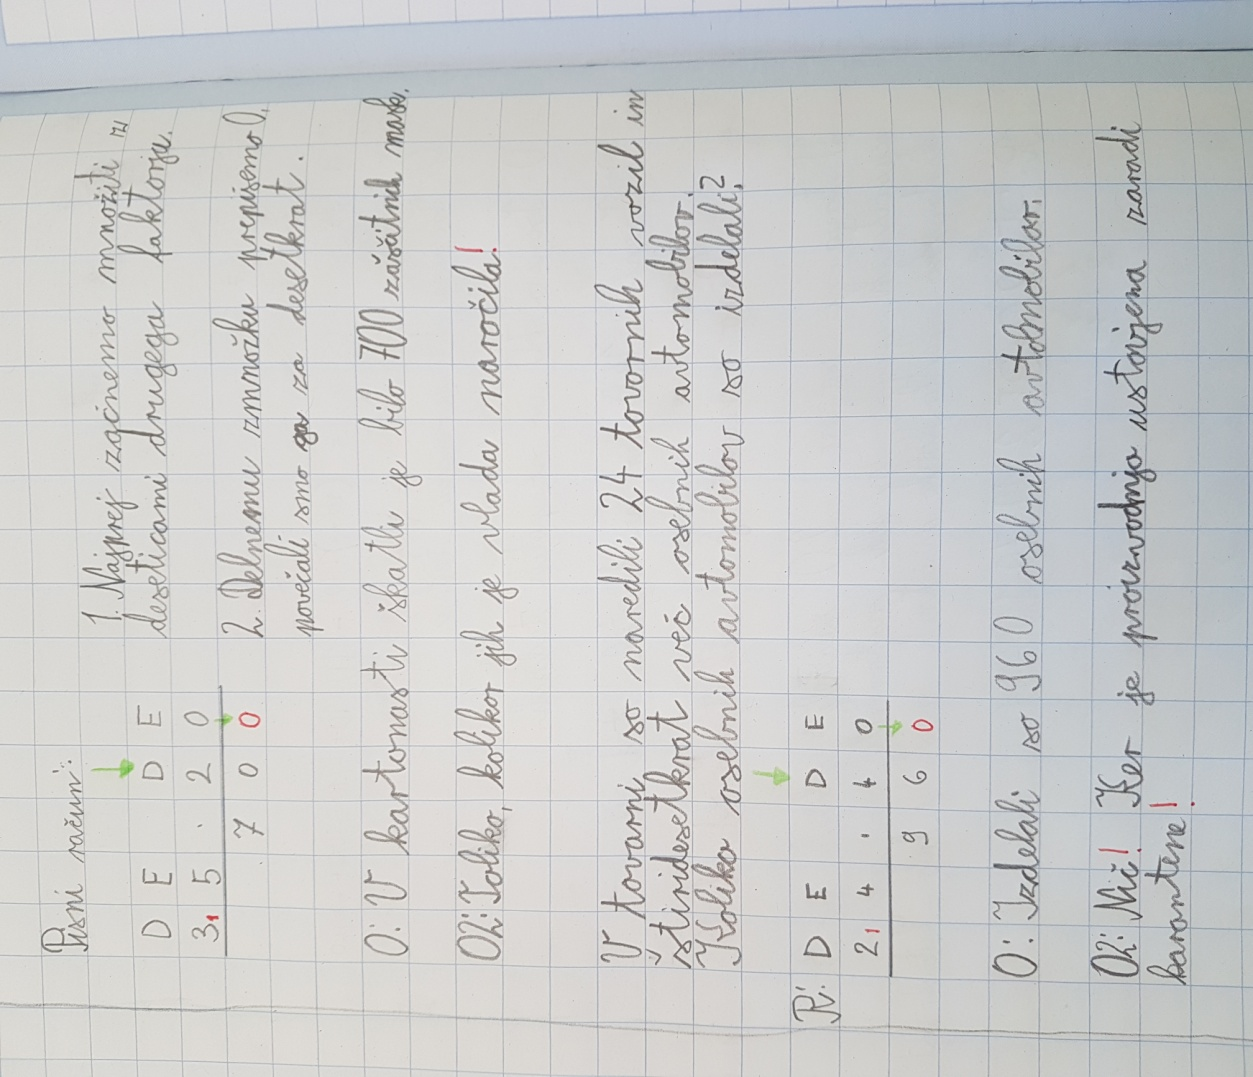 Pisni račun:
D E D E
3 1 5 . 2 0
7 0 0
1. Najprej začnemo množiti z
deseticami drugega faktorja.
2. Delnemu zmnožku pripišemo 0,
povečali smo ga za desetkrat.
O: V kartonasti škatli je bilo 700 zaščitnih mask.
O2: Toliko, kolikor jih je vlada naročila!
V tovarni so naredili 24 tovornih vozil in
štiridesetkrat več osebnih avtomobilov.
Koliko osebnih avtomobilov so izdelali?
R: D E D E
2 1 4 . 4 0
9 6 0
O: Izdelali so 960 osebnih avtomobilov.
O2: Nič! Ker je proizvodnja ustavjena zaradi
karantene!